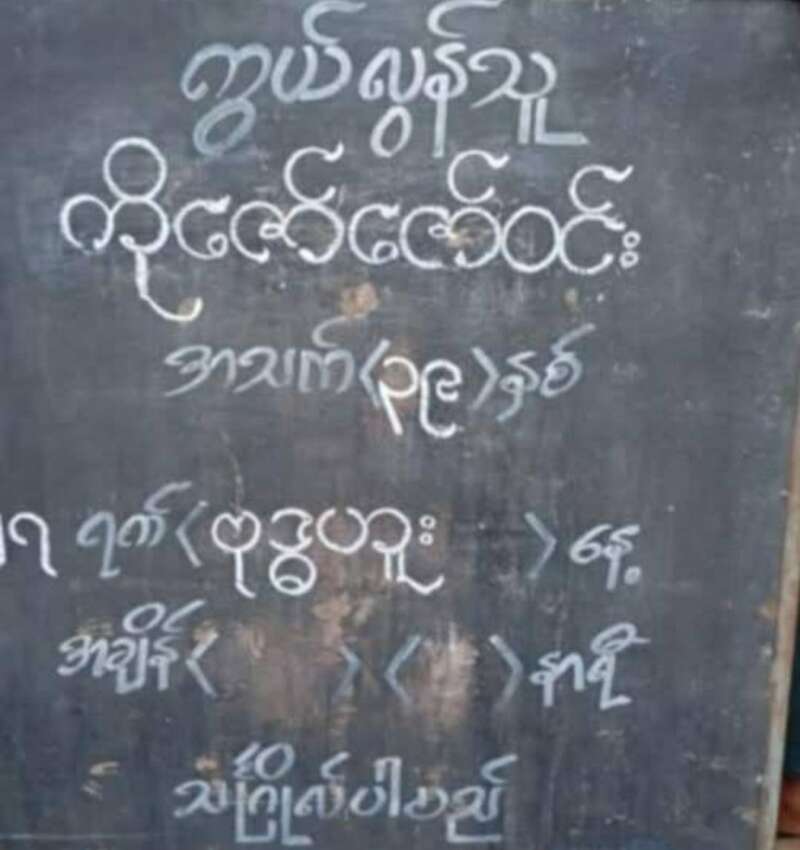 ကွယ်လွန်သူ
ကိုဇော်ဇော်ဝင်း
အသက်〈၃၉〉နှစ်
ရက်〈ဗုဒ္ဓဟူး 〉နေ့
အချိန်〈 〉〈 〉နာရီ
သင်္ဂြိုလ်ပါမည်